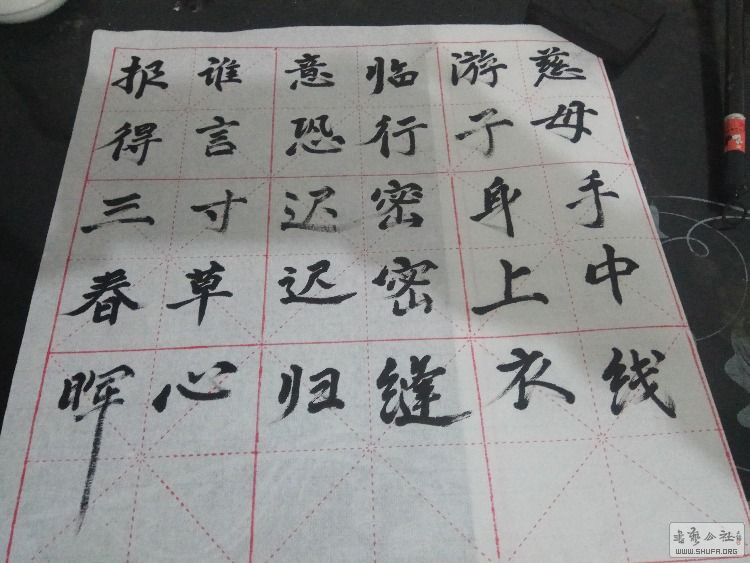 慈母手中线
游子身上衣
临行密密缝
意恐迟迟归
谁言寸草心
报得三春晖
书艺公社
WWW.SHUFA.ORG